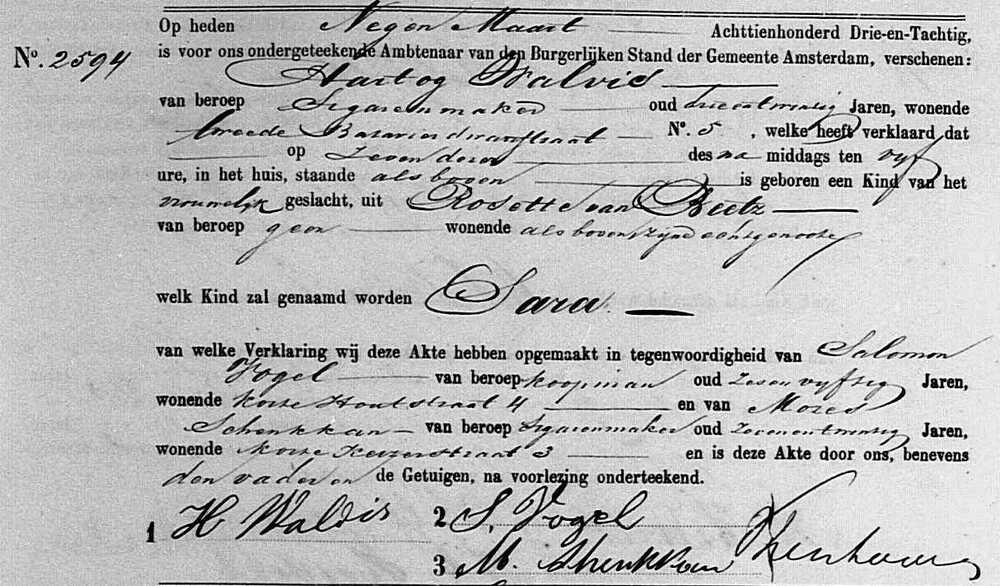 Op heden Negen Maart Achttienhonderd Drie-en-Tachtig,
No. 2594 is voor ons ondergeteekende Ambtenaar van den Burgerlijken Stand der Gemeente Amsterdam, verschenen:
Hartog Walvis
van beroep Sigarenmaker oud drieentwintig Jaren, wonende
tweede Batavierdwarsstraat No. 5, welke heeft verklaard dat
op Zeven dezer des na middags ten vyf
ure, in het huis, staande als boven is geboren een Kind van het
vrouwelyk geslacht, uit Rosette van Beetz
van beroep geen wonende als boven, zijne echtgenoote
welk Kind zal genaamd worden Sara.
van welke Verklaring wij deze Akte hebben opgemaakt in tegenwoordigheid van Salomon
Vogel van beroep koopman oud zesenvyftig Jaren,
wonende Korte Houtstraat 4 en van Mozes
Schenkkan van beroep Sigarenmaker oud zevenentwintig Jaren,
wonende Korte Keizerstraat 3 en is deze Akte door ons, benevens
den vader en de Getuigen, na voorlezing onderteekend.
1 H Waldis 2 S. Vogel
3 M. Shenkkan